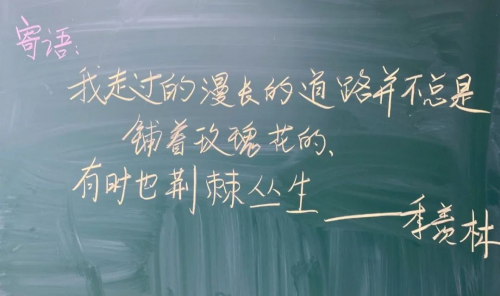 寄语:
我走过的漫长的道路并不总是
铺着玫瑰花的、
有时也荆棘丛生——季羡林